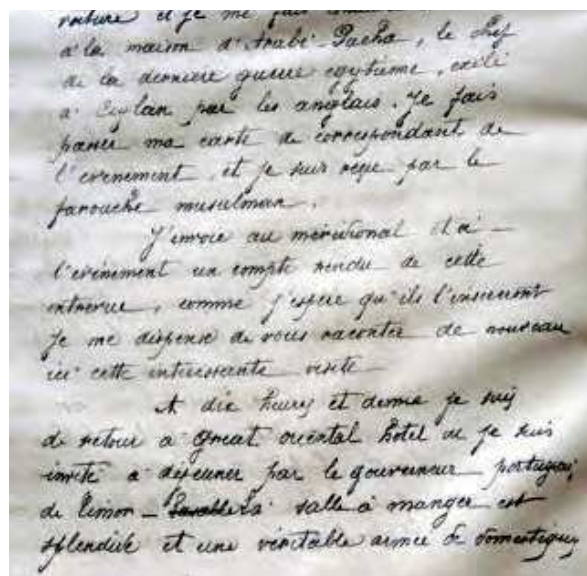 voiture et je me fais
à la maison d'Arabi-Pacha, le chef
de la dernière guerre egytienne, exilé
a Ceylan par les anglais. Je fais
passer ma carte de correspondant de
l'evenement, et je suis reçu par le
farouche musulman.
J'envoie au méridional et à
l'evénement un compte rendu de cette
entrevue, comme j'espère qu'ils l'inséreront
je me dispense de vous raconter de nouveau
ici cette interessante visite
A dix heures et demie je suis
de retour a Great oriental hotel ou je suis
invité a dejeuner par le gouverneur portugais
de Timor - La salle à manger est
splendide et une véritable armée de domestiques